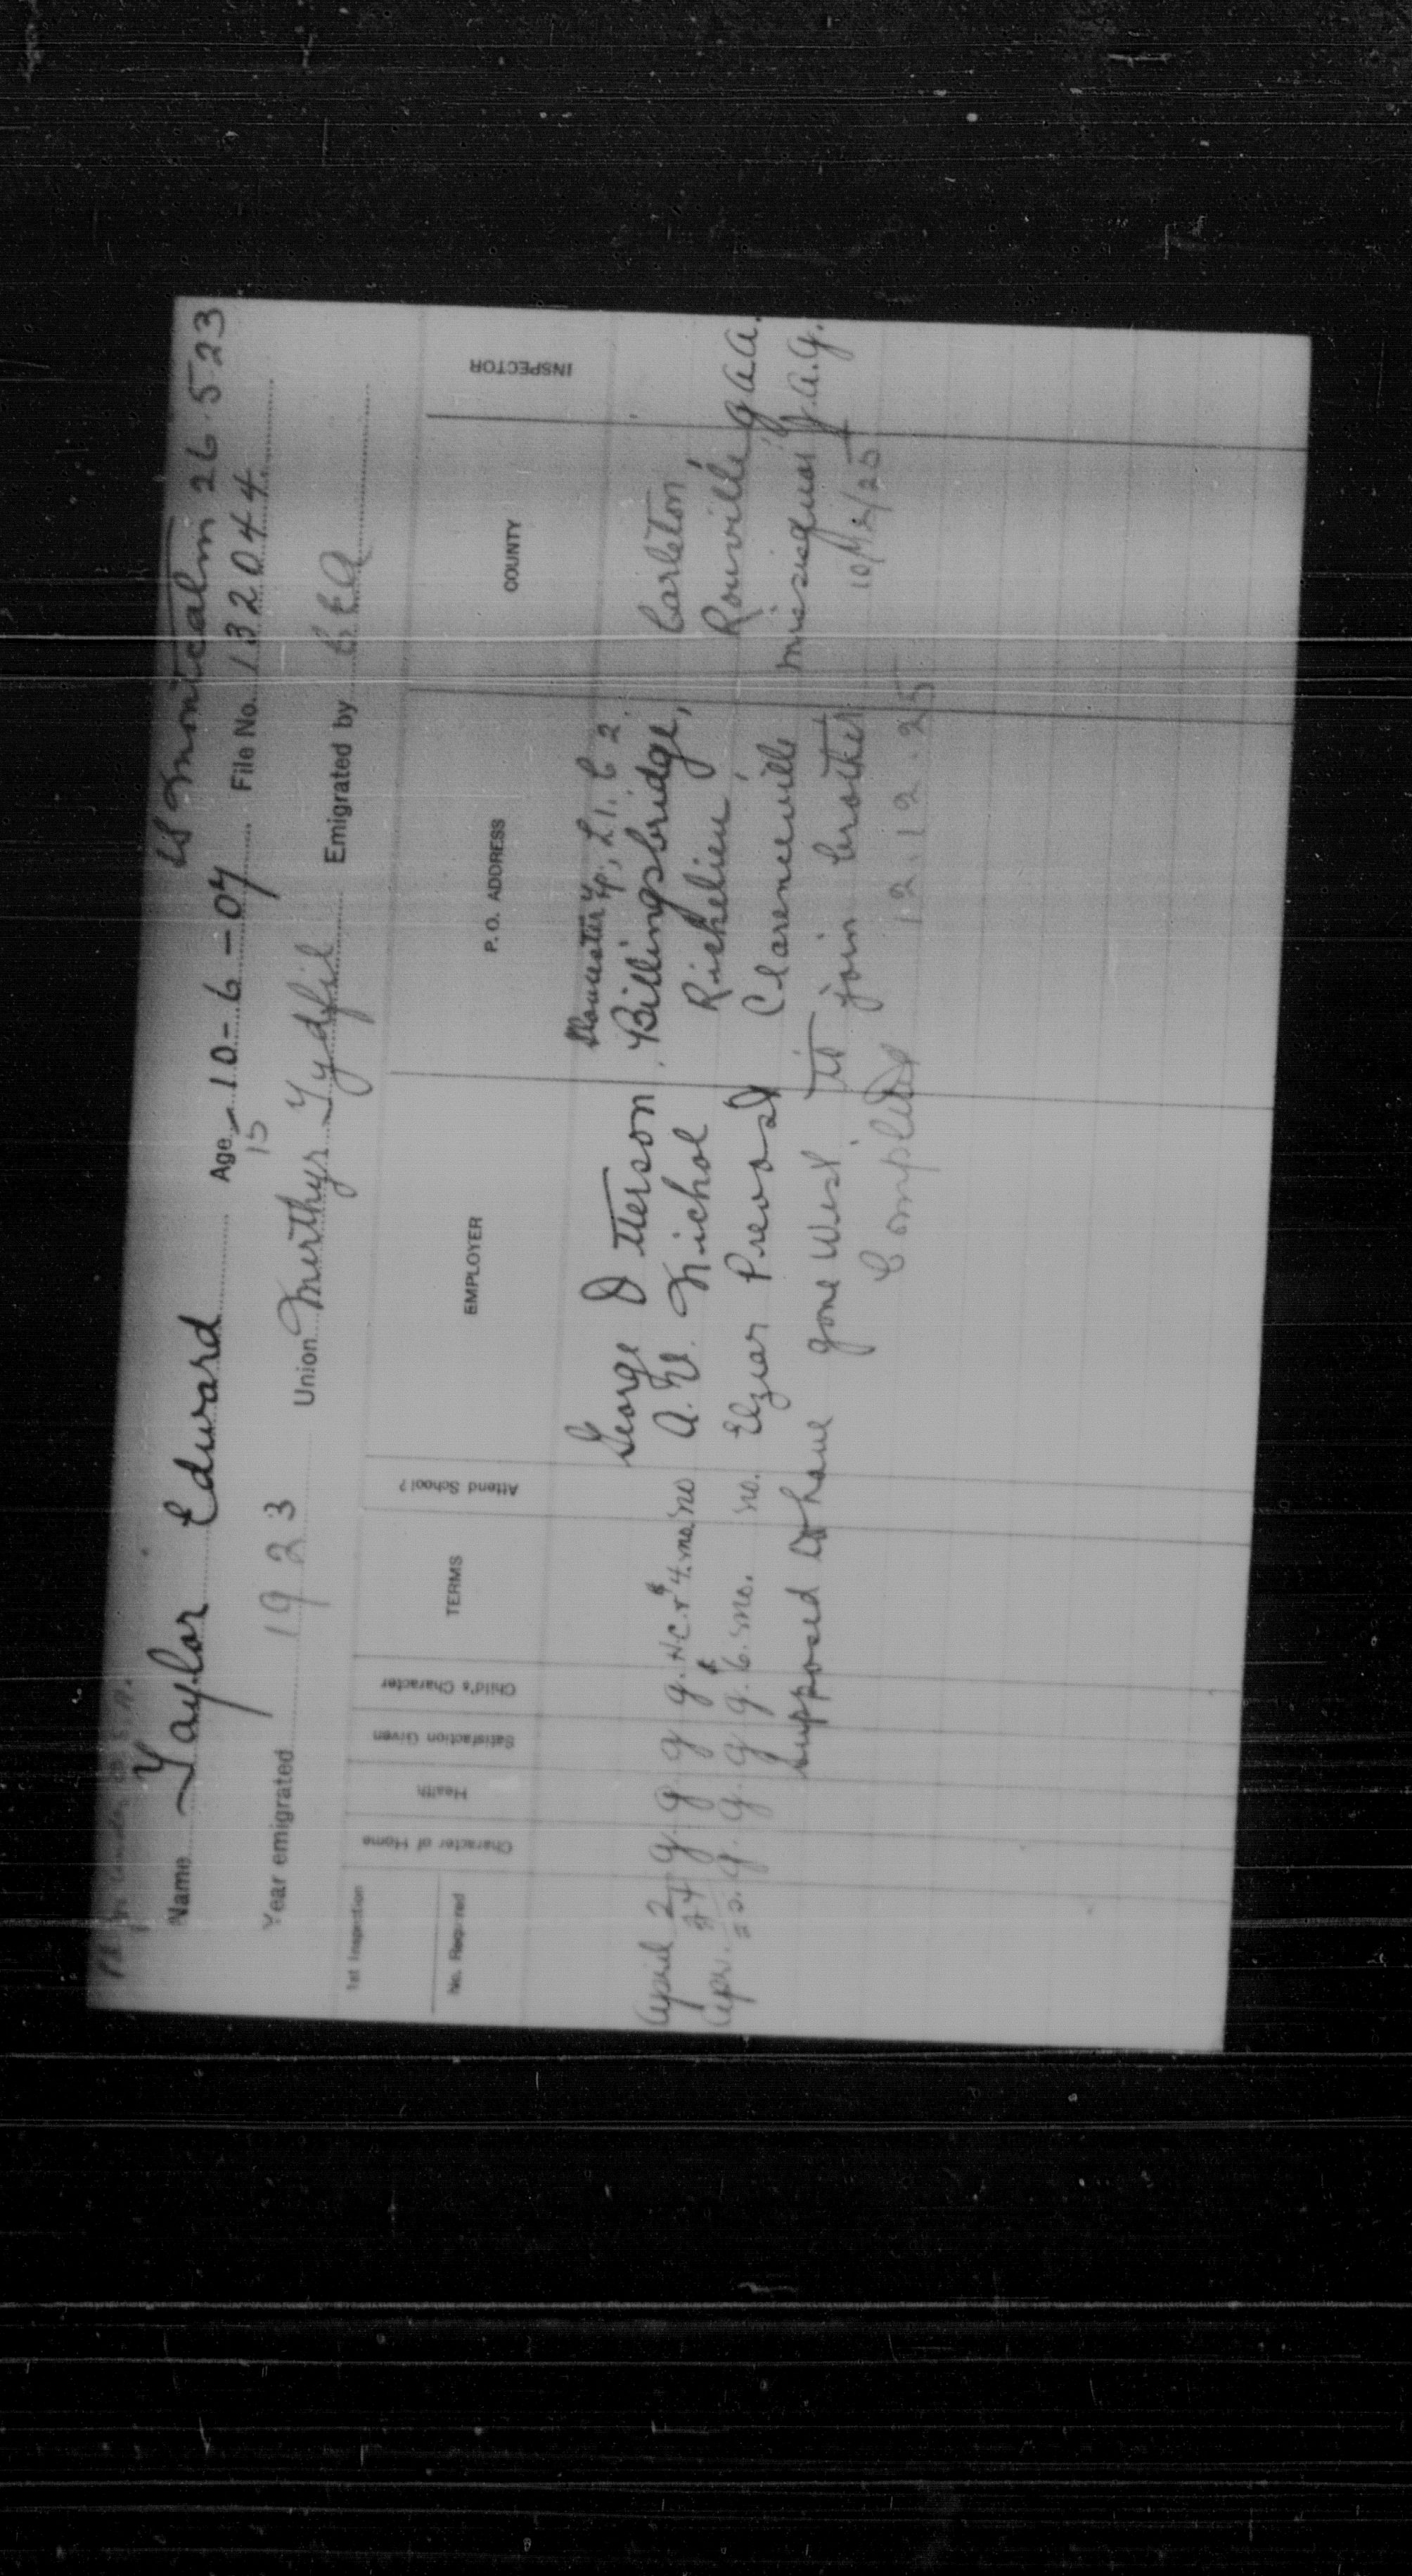 SS Montcalm 26.5.23
Name Taylor Edward Age 10-6-07 File No. 132044
15
Year emigrated 1923 Union Merthyr Tydfil Emigrated by
1st Inspection
No. Required Character of Home Health Satisfaction Given Child's Character TERMS Attend School? EMPLOYER P. O. ADDRESS COUNTY INSPECTOR
Gloucester Tp, L 1. C 2.
George Otterson Billingsbridge, Carleton
April 2/24 g. g. g g. H.C. + $4. mo. no A. E. Nichol Richelieu, Rouville, G.A.A.
Apr. 25. g. g. g g. $6. mo. no. Elzear Prevost Clarenceville Missisquoi J.A.G.
Supposed to have gone West to join brother 10/12/25
Completed 12.12.25